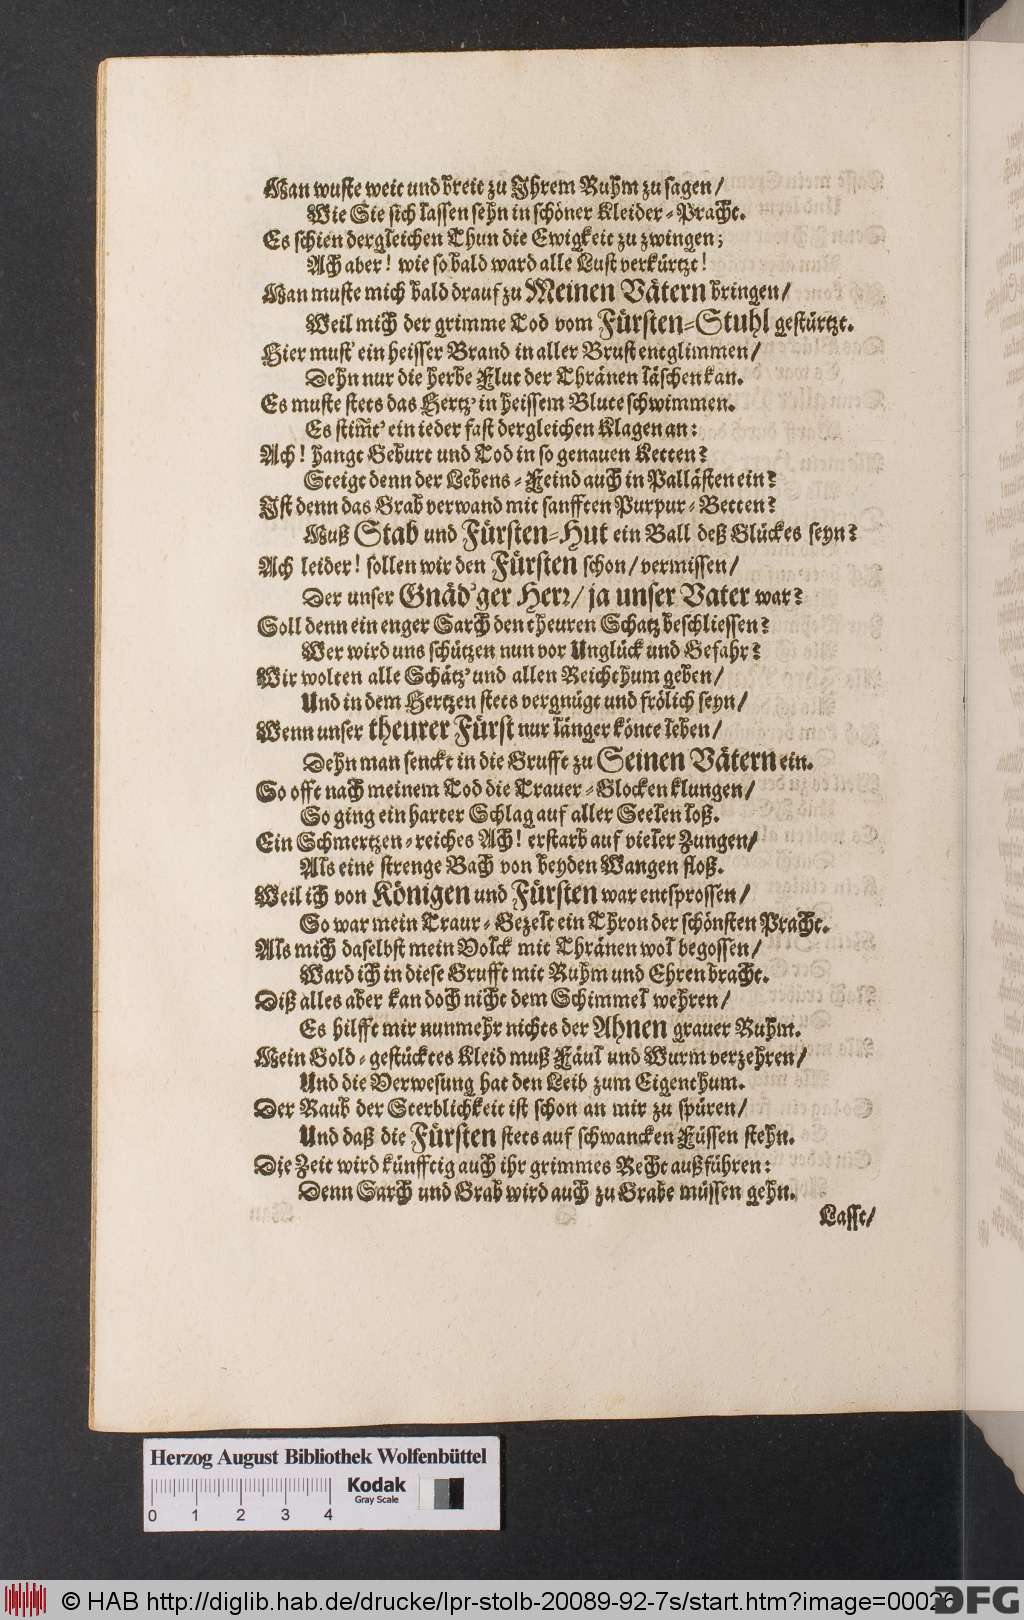 Man wuste weit und breit zu Ihrem Ruhm zu sagen/
Wie Sie sich lassen sehn in schöner Kleider-Pracht.
Es schien dergleichen Thun die Ewigkeit zu zwingen;
Ach aber! wie so bald ward alle Lust verkürtzt!
Man muste mich bald drauf zu Meinen Vätern bringen/
Weil mich der grimme Tod vom Fürsten-Stuhl gestürtzt.
Hier must' ein heisser Brand in aller Brust entglimmen/
Dehn nur die herbe Flut der Thränen läschen kan.
Es muste stets das Hertz' in heissem Blute schwimmen.
Es stim̃t' ein ieder fast dergleichen Klagen an:
Ach! hangt Geburt und Tod in so genauen Ketten?
Steigt denn der Lebens-Feind auch in Pallästen ein?
Ist denn das Grab verwand mit sanfften Purpur-Betten?
Muß Stab und Fürsten-Hut ein Ball deß Glückes seyn?
Ach leider! sollen wir den Fürsten schon/ vermissen/
Der unser Gnäd'ger Herr/ ja unser Vater war?
Soll denn ein enger Sarch den theuren Schatz beschliessen?
Wer wird uns schützen nun vor Unglück und Gefahr?
Wir wolten alle Schätz' und allen Reichthum geben/
Und in dem Hertzen stets vergnügt und frölich seyn/
Wenn unser theurer Fürst nur länger könte leben/
Dehn man senckt in die Grufft zu Seinen Vätern ein.
So offt nach meinem Tod die Trauer-Glocken klungen/
So ging ein harter Schlag auf aller Seelen loß.
Ein Schmertzen-reiches Ach! erstarb auf vieler Zungen/
Als eine strenge Bach von beyden Wangen floß.
Weil ich von Königen und Fürsten war entsprossen/
So war mein Traur-Gezelt ein Thron der schönsten Pracht.
Als mich daselbst mein Volck mit Thränen wol begossen/
Ward ich in diese Grufft mit Ruhm und Ehren bracht.
Diß alles aber kan doch nicht dem Schimmel wehren/
Es hilfft mir nunmehr nichts der Ahnen grauer Ruhm.
Mein Gold-gestücktes Kleid muß Fäul und Wurm verzehren/
Und die Verwesung hat den Leib zum Eigenthum.
Der Raub der Sterblichkeit ist schon an mir zu spüren/
Und daß die Fürsten stets auf schwancken Füssen stehn.
Die Zeit wird künfftig auch ihr grimmes Recht außführen:
Denn Sarch und Grab wird auch zu Grabe müssen gehn.
Lasst/
Herzog August Bibliothek Wolfenbüttel
Kodak
Gray Scale
0 1 2 3 4
© HAB http://diglib.hab.de/drucke/lpr-stolb-20089-92-7s/start.htm?image=00026
DFG